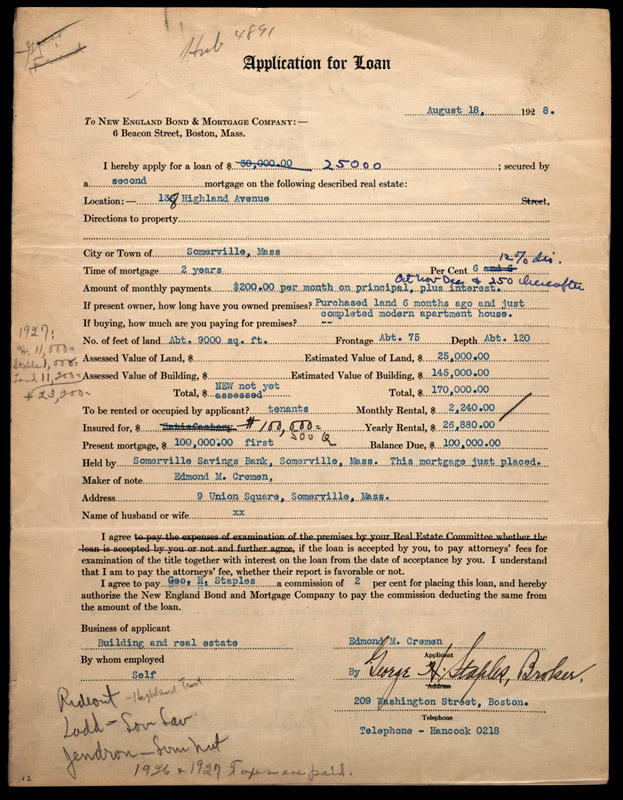 Hub 4891
Application for Loan
August 18, 1928.
To New England Bond & Mortgage Company:—
6 Beacon Street, Boston, Mass.
I hereby apply for a loan of $ 30,000.00 25000 ; secured by
a second mortgage on the following described real estate:
Location:— 138 Highland Avenue Street,
Directions to property
City or Town of Somerville, Mass
12% dis.
Time of mortgage 2 years Per Cent 6 and 6
Oct Nov Dec & 250 hereafter
Amount of monthly payments $200.00 per month on principal, plus interest.
If present owner, how long have you owned premises? Purchased land 6 months ago and just
completed modern apartment house.
If buying, how much are you paying for premises? --
No. of feet of land Abt. 9000 sq. ft. Frontage Abt. 75 Depth Abt. 120
1927:
Ho. 11,000=
Stable 1,000=
Land 11,200=
$23,200=
Assessed Value of Land, $ Estimated Value of Land, $ 25,000.00
Assessed Value of Building, $ Estimated Value of Building, $ 145,000.00
Total, $ NEW not yet assessed Total, $ 170,000.00
To be rented or occupied by applicant? tenants Monthly Rental, $ 2,240.00
Insured for, $ Satisfactory $100,000= Yearly Rental, $ 26,880.00
500 Q
Present mortgage, $ 100,000.00 first Balance Due, $ 100,000.00
Held by Somerville Savings Bank, Somerville, Mass. This mortgage just placed.
Maker of note Edmond M. Cremen,
Address 9 Union Square, Somerville, Mass.
Name of husband or wife xx
I agree to pay the expenses of examination of the premises by your Real Estate Committee whether the
loan is accepted by you or not and further agree, if the loan is accepted by you, to pay attorneys' fees for
examination of the title together with interest on the loan from the date of acceptance by you. I understand
that I am to pay the attorneys' fee, whether their report is favorable or not.
I agree to pay Geo. H. Staples a commission of 2 per cent for placing this loan, and hereby
authorize the New England Bond and Mortgage Company to pay the commission deducting the same from
the amount of the loan.
Business of applicant
Building and real estate
By whom employed
Self
Edmond M. Cremen
Applicant
By George H. Staples, Broker.
Address
209 Washington Street, Boston.
Telephone
Telephone - Hancock 0218
Rideout - Highland Trust
Ladd - Som Sav.
Jendron - Som Mut
1926 & 1927 Taxes are paid.